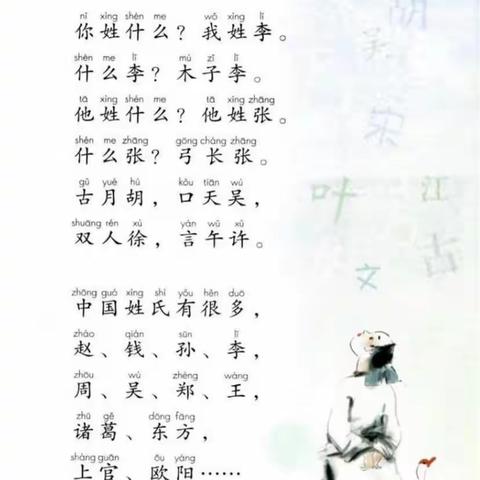 nǐ xìng shén me wǒ xìng lǐ
你姓什么？我姓李。
shén me lǐ mù zǐ lǐ
什么李？木子李。
tā xìng shén me tā xìng zhāng
他姓什么？他姓张。
shén me zhāng gōng cháng zhāng
什么张？弓长张。
gǔ yuè hú kǒu tiān wú
古月胡，口天吴，
shuāng rén xú yán wǔ xǔ
双人徐，言午许。
zhōng guó xìng shì yǒu hěn duō
中国姓氏有很多，
zhào qián sūn lǐ
赵、钱、孙、李，
zhōu wú zhèng wáng
周、吴、郑、王，
zhū gě dōng fāng
诸葛、东方，
shàng guān ōu yáng
上官、欧阳……
胡
吴
叶
江
古
文